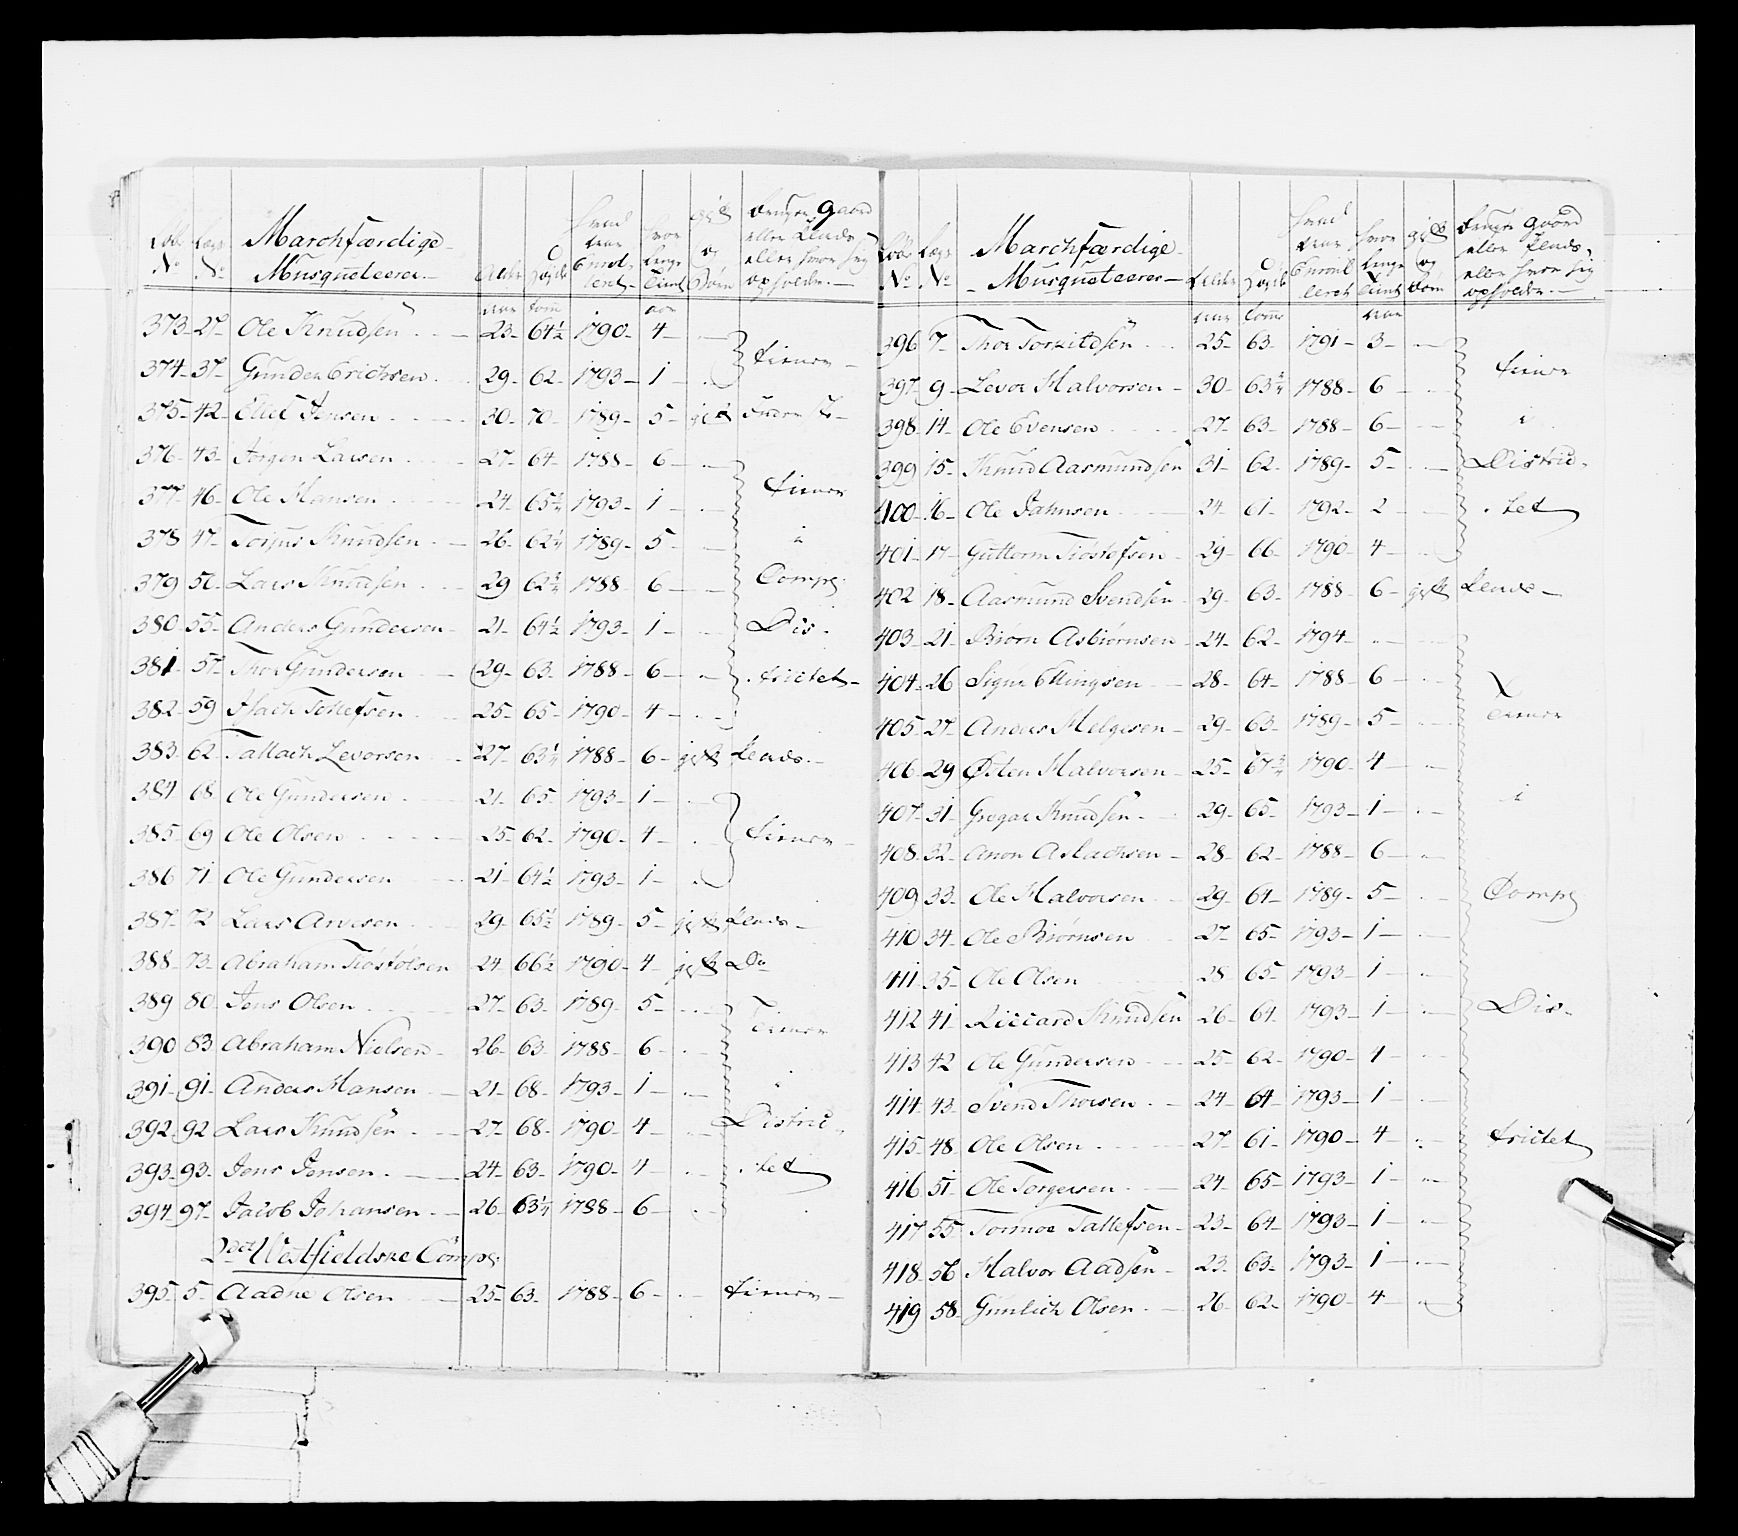 Marchfærdige
Musqueteerer
373 27 Ole Knudsen 23 64½ 1790 4
374 37 Gunder Erichsen 29 62 1793 1 tiener
375 42 Eliel Jensen 30 70 1789 5 gift
376 43 Jørgen Larsen 27 64 1788 6
377 46 Ole Hansen 24 65½ 1793 1 tiener
378 47 Torjus Knudsen 26 62¼ 1789 5 i
379 50 Lars Knudsen 29 62¾ 1788 6 Comps
380 55 Anders Gundersen 21 64½ 1793 1 Dis-
381 57 Thor Gundersen 29 63 1788 6 trictet
382 59 Tollefsen 25 65 1790 4
383 62 Tallach Levorsen 27 63¼ 1788 6 gift
384 68 Ole Gundersen 21 65 1793 1
385 69 Ole Olsen 25 62 1790 4 tiener
386 71 Ole Gundersen 21 64½ 1793 1
387 72 Lars Arvesen 29 65½ 1789 5 gift
388 73 Abraham Tiøstølsen 24 66½ 1790 4 gift Do
389 80 Jens Olsen 27 63 1789 5 Tiener
390 83 Abraham Nielsen 26 63 1788 6
391 91 Anders Hansen 21 68 1793 1 i
392 92 Lars Knudsen 27 68 1790 4 Districk-
393 93 Jens Jensen 24 63 1790 4 tet
394 97 Jacob Johansen 26 63¼ 1788 6
2det Vestfieldske Comps:
395 5 Aadne Olsen 25 63 1788 6 tiener
Marchfærdige
Musqueteerer
396 7 Thor Torkildsen 25 63 1791 3
397 9 Levor Halvorsen 30 63¾ 1788 6 tiener
398 14 Ole Evensen 27 63 1788 6 i
399 15 Knud Aasmundsen 31 62 1789 5 District-
400 16 Ole Jahnsen 24 61 1792 2 tet
401 17 Guttorm Tiøstefsen 29 66 1790 4
402 18 Aasmund Svendsen 29 63 1788 6 gift
403 21 Biørn Asbiørnsen 24 62 1794
404 26 Signe Ellingsen 28 64 1788 6
405 27 Anders Helgesen 29 63 1789 5 Tiener
406 29 Østen Halvorsen 25 67¾ 1790 4
407 31 Gregar Knudsen 29 65 1793 1 i
408 32 Anon Aslachsen 28 62 1788 6
409 33 Ole Halvorsen 29 64 1789 5 Comps
410 34 Ole Biørnsen 27 65 1793 1
411 35 Ole Olsen 28 65 1793 1
412 41 Riccard Knudsen 26 64 1793 1 Dis-
413 42 Ole Gundersen 25 62 1790 4
414 43 Svend Thorsen 24 64 1793 1
415 48 Ole Olsen 27 61 1790 4 trictet
416 51 Ole Torgersen 24 65 1793 1
417 55 Tormoe Tallefsen 23 64 1793 1
418 56 Halvor Aadsen 23 63 1793 1
419 58 Gunlich Olsen 26 62 1790 4